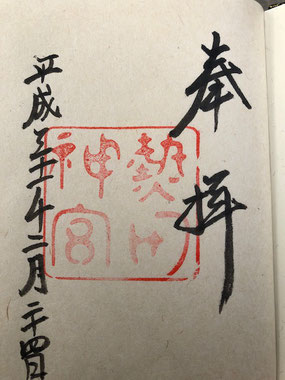 奉拝
熱田
神宮
平成三十一年二月二十四日